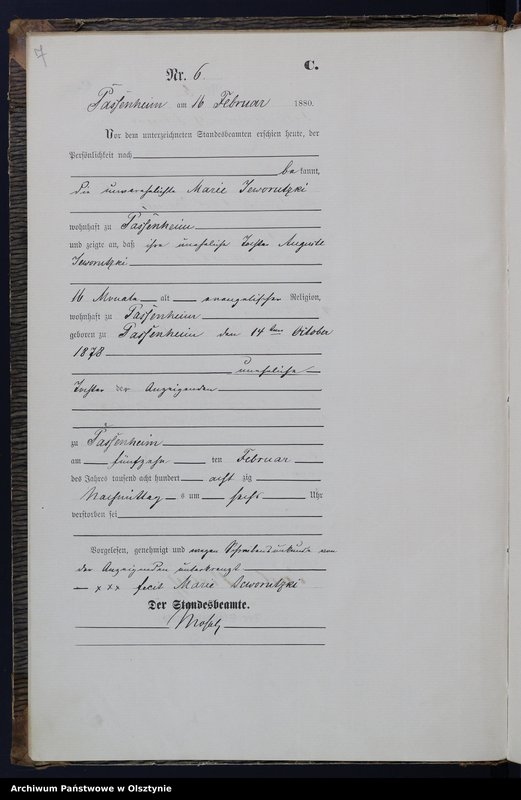 7
C.
Nr. 6.
Passenheim am 16 Februar 1880.
Vor dem unterzeichneten Standesbeamten erschien heute, der
Persönlichkeit nach
bekannt,
die unverehelichte Marie Jeworutzki
wohnhaft zu Passenheim
und zeigte an, daß ihre uneheliche Tochter Auguste
Jeworutzki
16 Monate alt evangelischer Religion,
wohnhaft zu Passenheim
geboren zu Passenheim den 14ten October
1878
uneheliche
Tochter der Anzeigenden
zu Passenheim
am fünfzehn ten Februar
des Jahres tausend acht hundert acht zig
Nachmittag s um sechs Uhr
verstorben sei
Vorgelesen, genehmigt und wegen Schreibensunkunde von
der Anzeigenden unterkreuzt
xxx fecit Marie Jeworutzki
Der Standesbeamte.
Archiwum Państwowe w Olsztynie